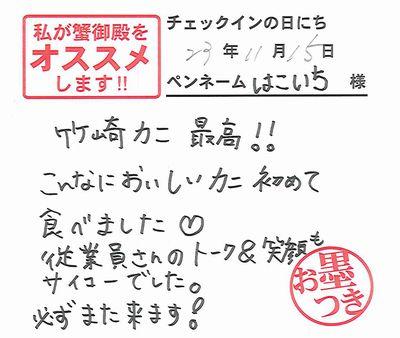 私が蟹御殿を
オススメ
します!!
チェックインの日にち
23年11月15日
ペンネーム はこいち 様
竹崎カニ 最高!!
こんなにおいしいカニ初めて
食べました♡
従業員さんのトーク&笑顔も
サイコーでした。
必ずまた来ます!
お墨つき